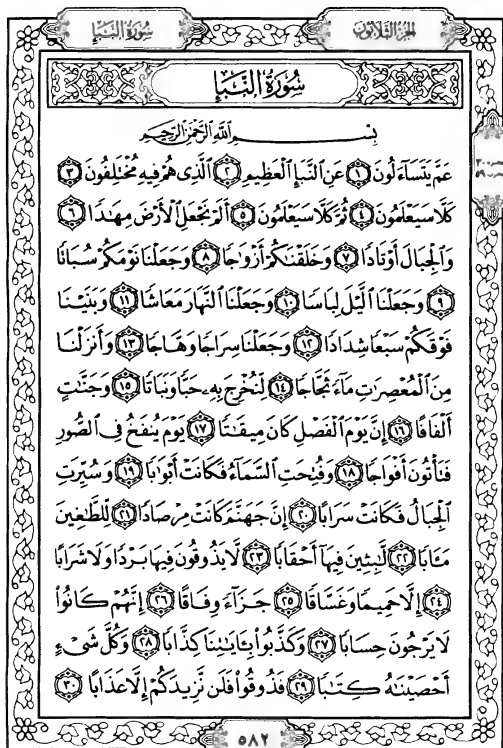 سُورَةُ النَّبَإِ
الجُزْءُ الثَّلَاثُونَ
سُورَةُ النَّبَإِ
بِسْمِ اللَّهِ الرَّحْمَٰنِ الرَّحِيمِ
عَمَّ يَتَسَاءَلُونَ ١ عَنِ النَّبَإِ الْعَظِيمِ ٢ الَّذِي هُمْ فِيهِ مُخْتَلِفُونَ ٣
كَلَّا سَيَعْلَمُونَ ٤ ثُمَّ كَلَّا سَيَعْلَمُونَ ٥ أَلَمْ نَجْعَلِ الْأَرْضَ مِهَادًا ٦
وَالْجِبَالَ أَوْتَادًا ٧ وَخَلَقْنَاكُمْ أَزْوَاجًا ٨ وَجَعَلْنَا نَوْمَكُمْ سُبَاتًا
٩ وَجَعَلْنَا اللَّيْلَ لِبَاسًا ١٠ وَجَعَلْنَا النَّهَارَ مَعَاشًا ١١ وَبَنَيْنَا
فَوْقَكُمْ سَبْعًا شِدَادًا ١٢ وَجَعَلْنَا سِرَاجًا وَهَّاجًا ١٣ وَأَنزَلْنَا
مِنَ الْمُعْصِرَاتِ مَاءً ثَجَّاجًا ١٤ لِّنُخْرِجَ بِهِ حَبًّا وَنَبَاتًا ١٥ وَجَنَّاتٍ
أَلْفَافًا ١٦ إِنَّ يَوْمَ الْفَصْلِ كَانَ مِيقَاتًا ١٧ يَوْمَ يُنفَخُ فِي الصُّورِ
فَتَأْتُونَ أَفْوَاجًا ١٨ وَفُتِحَتِ السَّمَاءُ فَكَانَتْ أَبْوَابًا ١٩ وَسُيِّرَتِ
الْجِبَالُ فَكَانَتْ سَرَابًا ٢٠ إِنَّ جَهَنَّمَ كَانَتْ مِرْصَادًا ٢١ لِّلطَّاغِينَ
مَآبًا ٢٢ لَّابِثِينَ فِيهَا أَحْقَابًا ٢٣ لَّا يَذُوقُونَ فِيهَا بَرْدًا وَلَا شَرَابًا
٢٤ إِلَّا حَمِيمًا وَغَسَّاقًا ٢٥ جَزَاءً وِفَاقًا ٢٦ إِنَّهُمْ كَانُوا
لَا يَرْجُونَ حِسَابًا ٢٧ وَكَذَّبُوا بِآيَاتِنَا كِذَّابًا ٢٨ وَكُلَّ شَيْءٍ
أَحْصَيْنَاهُ كِتَابًا ٢٩ فَذُوقُوا فَلَن نَّزِيدَكُمْ إِلَّا عَذَابًا ٣٠
٥٨٢